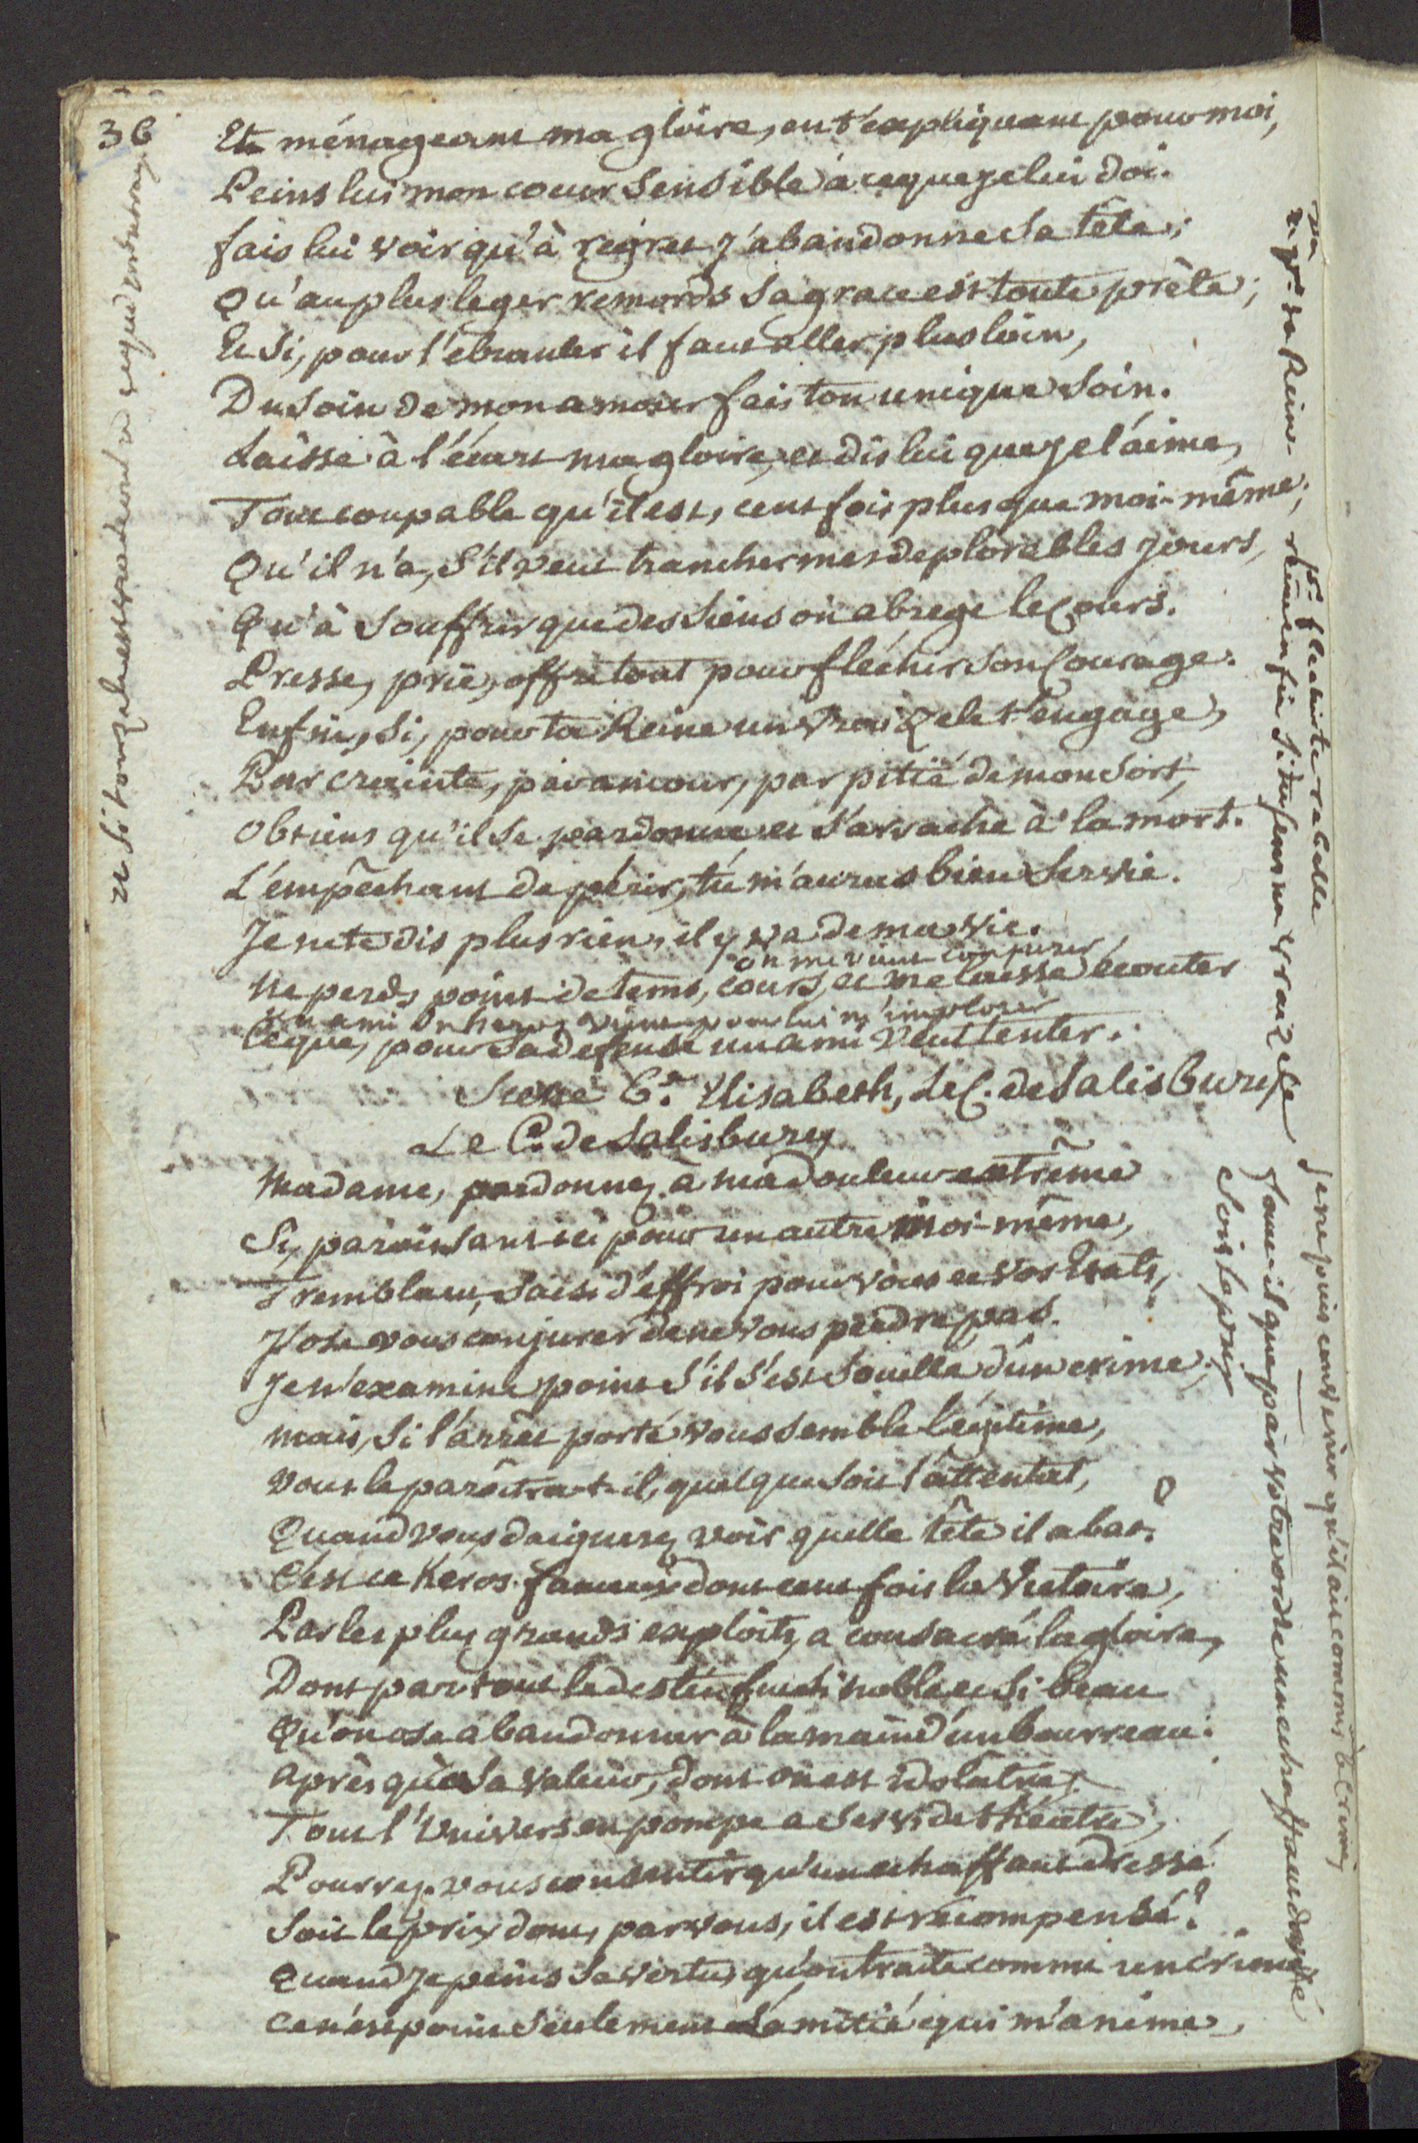 36
Et ménageant ma gloire, en t'expliquant pour moi,
Peins lui mon coeur sensible à ce que je lui doi.
fais lui voir qu'à regret j'abandonne sa tête;
Qu'au plus leger remords sa grace est toute prête;
Et si, pour l'ebranler il faut aller plus loin,
Du soin de mon amour fais ton unique soin.
Laisse à l'écart ma gloire, et dis lui que je l'aime,
Tout coupable qu'il est, cent fois plus que moi-même;
Qu'il n'a, s'il veut trancher mes deplorables jours,
Qu'à souffrir que des siens on abrege le Cours.
Presse, prie, offre tout pour fléchir son Courage.
Enfin, si, pour ta Reine un vrai Zele t'engage,
Par crainte, par amour, par pitié de mon sort,
Obtiens qu'il se pardonne et s'arrache à la mort.
L'empêchant de périr, tu m'auras bien servie.
Je ne te dis plus rien, il y va de ma vie.
on me vient conjurer
Ne perds point de tems, cours, et me laisse écouter
un ami vient pour lui m'implorer
Ceque, pour sa defense un ami veut tenter.
Scene 6.e Elisabeth, Le C. de Salisbury
Le C. de Salisbury
Madame, pardonnez à ma douleur extrême
Si, paroissant ici pour un autre moi-même,
Tremblant, saisi d'effroi pour vous et vos Etats,
J'ose vous conjurer de ne vous perdre pas.
Je n'examine point s'il s'est souillé d'un crime;
mais, si l'arrêt porté vous semble légitime,
Vous le paroîtra-t-il, quelque soit l'attentat,
Quand vous daignerez voir quelle tête il abat?
C'est ce Heros fameux dont cent fois la Victoire,
Par les plus grands exploits a consacré la gloire,
Dont par tout le destin fut si noble et si beau
Qu'on ose abandonner à la main d'un bourreau.
Après qu'à sa valeur, dont on est idolatre,
Tout l'Univers en pompe a servi de théatre,
Pourrez-vous consentir qu'un echaffaut dressé
Soit le prix dont, par vous, il est récompensé?
Quand je peins sa vertu, qu'on traite comme un crime
Ce n'est point seulement l'amitié qui m'anime,
la Reine, enfin si tu sens un vrai zele
flechir te rebelle
Je ne puis concevoir qu'il ait commis le crime,
faut-il que par votre ordre un echaffaut dressé
Soit le prix